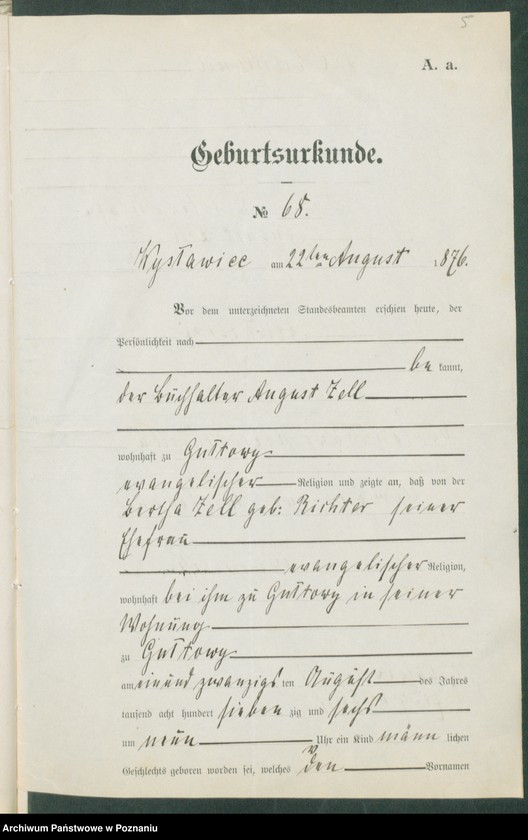 5
A. a.
Geburtsurkunde.
№ 68.
Wyslawiec am 22ten August 1876.
Vor dem unterzeichneten Standesbeamten erschien heute, der
Persönlichkeit nach
be kannt,
der Buchhalter August Zell
wohnhaft zu Gultowy
evangelischer Religion und zeigte an, daß von der
Bertha Zell geb: Richter seiner
Ehefrau
evangelischer Religion,
wohnhaft bei ihm zu Gultowy in seiner
Wohnung
zu Gultowy
am ein und zwanzigs ten August des Jahres
tausend acht hundert sieben zig und sechs
um neun Uhr ein Kind männ lichen
Geschlechts geboren worden sei, welches den Vornamen
Archiwum Państwowe w Poznaniu